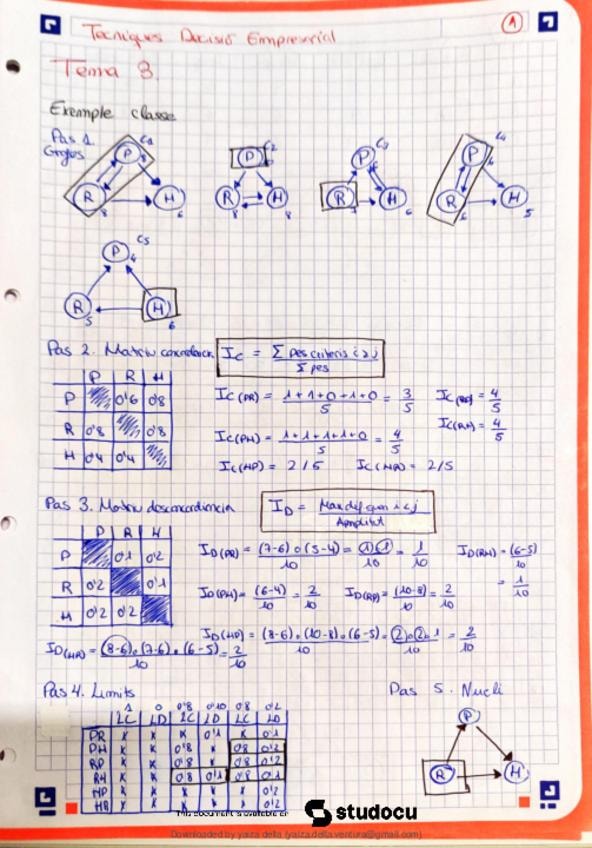 Tecniques Decisió Empresarial
1
Tema 3.
Exemple classe
Pas 1.
Grafos
C1
P
8
R
8
H
6
C2
P
R
8
H
8
C3
P
R
7
H
6
C4
P
6
R
6
H
5
C5
P
4
R
5
H
6
Pas 2. Matriu concordancia
Ic = Σ pes criteris i ≥ j / Σ pes
P R H
P 0'6 0'8
R 0'8 0'8
H 0'4 0'4
Ic(PR) = 1+1+0+1+0 / 5 = 3/5
Ic(RP) = 4/5
Ic(PH) = 1+1+1+1+0 / 5 = 4/5
Ic(RH) = 4/5
Ic(HP) = 2/5
Ic(HR) = 2/5
Pas 3. Matriu discordancia
ID = Max dif quan i < j / Amplitut
P R H
P 0'1 0'2
R 0'2 0'1
H 0'2 0'2
ID(PR) = (7-6) o (5-4) / 10 = 1 o 1 / 10 = 1/10
ID(RH) = (6-5) / 10 = 1/10
ID(PH) = (6-4) / 10 = 2/10
ID(RP) = (10-8) / 10 = 2/10
ID(HP) = (8-6) o (10-8) o (6-5) / 10 = 2 o 2 o 1 / 10 = 2/10
ID(HR) = (8-6) o (7-6) o (6-5) / 10 = 2/10
Pas 4. Limits
1 0 0'8 0'10 0'8 0'2
LC LD LC LD LC LD
PR X X X 0'1 X 0'1
PH X X 0'8 X 0'8 0'2
RP X X 0'8 X 0'8 0'2
RH X X 0'8 0'1 0'8 0'1
HP X X X X X 0'2
HR X X X X X 0'2
Pas 5. Nucli
P
R
H
This document is available on
studocu
Downloaded by yaiza della (yaiza.della.ventura@gmail.com)